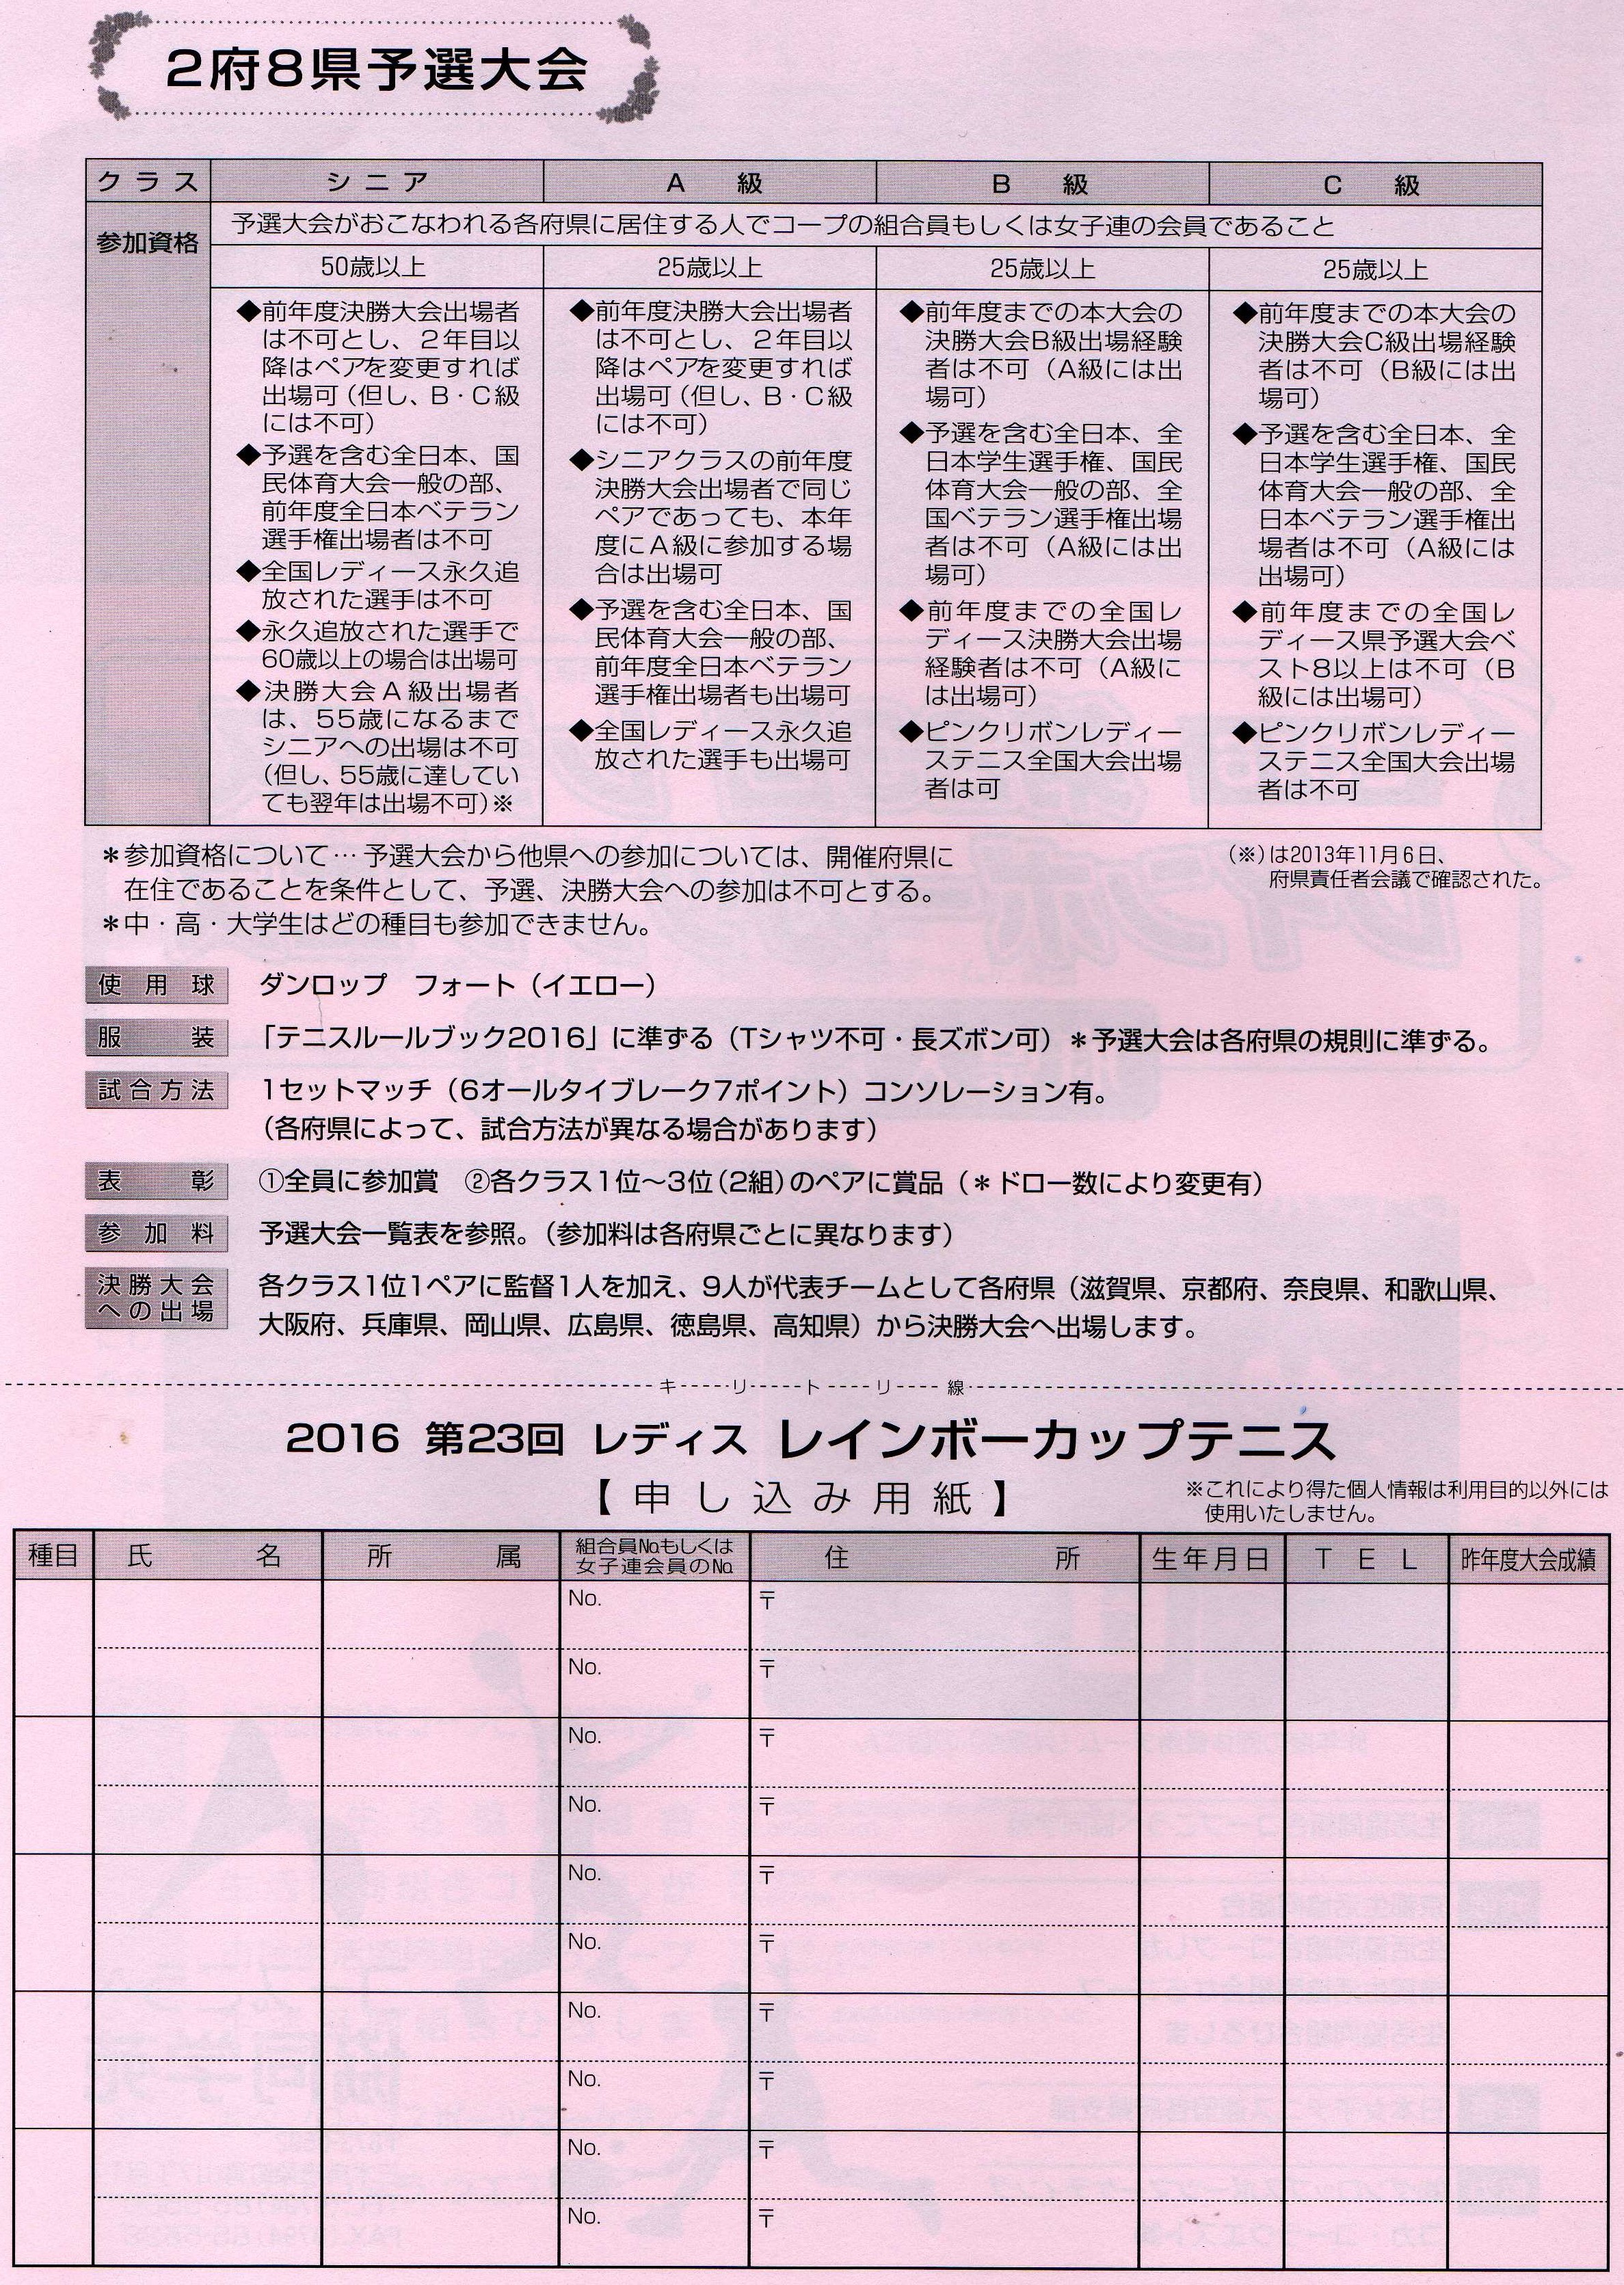 2府8県予選大会
クラス シニア A級 B級 C級
参加資格
予選大会がおこなわれる各府県に居住する人でコープの組合員もしくは女子連の会員であること
50歳以上 25歳以上 25歳以上 25歳以上
◆前年度決勝大会出場者
は不可とし、2年目以
降はペアを変更すれば
出場可(但し、B・C級
には不可)
◆予選を含む全日本、国
民体育大会一般の部、
前年度全日本ベテラン
選手権出場者は不可
◆全国レディース永久追
放された選手は不可
◆永久追放された選手で
60歳以上の場合は出場可
◆決勝大会A級出場者
は、55歳になるまで
シニアへの出場は不可
(但し、55歳に達してい
ても翌年は出場不可)※
◆前年度決勝大会出場者
は不可とし、2年目以
降はペアを変更すれば
出場可(但し、B・C級
には不可)
◆シニアクラスの前年度
決勝大会出場者で同じ
ペアであっても、本年
度にA級に参加する場
合は出場可
◆予選を含む全日本、国
民体育大会一般の部、
前年度全日本ベテラン
選手権出場者も出場可
◆全国レディース永久追
放された選手も出場可
◆前年度までの本大会の
決勝大会B級出場経験
者は不可(A級には出
場可)
◆予選を含む全日本、全
日本学生選手権、国民
体育大会一般の部、全
国ベテラン選手権出場
者は不可(A級には出
場可)
◆前年度までの全国レ
ディース決勝大会出場
経験者は不可(A級に
は出場可)
◆ピンクリボンレディー
ステニス全国大会出場
者は可
◆前年度までの本大会の
決勝大会C級出場経験
者は不可(B級には出
場可)
◆予選を含む全日本、全
日本学生選手権、国民
体育大会一般の部、全
日本ベテラン選手権出
場者は不可(A級には
出場可)
◆前年度までの全国レ
ディース県予選大会ベ
スト8以上は不可(B
級には出場可)
◆ピンクリボンレディー
ステニス全国大会出場
者は不可
＊参加資格について…予選大会から他県への参加については、開催府県に
在住であることを条件として、予選、決勝大会への参加は不可とする。
＊中・高・大学生はどの種目も参加できません。
(※)は2013年11月6日、
府県責任者会議で確認された。
使用球 ダンロップ フォート(イエロー)
服装 「テニスルールブック2016」に準ずる(Tシャツ不可・長ズボン可)＊予選大会は各府県の規則に準ずる。
試合方法 1セットマッチ(6オールタイブレーク7ポイント)コンソレーション有。
(各府県によって、試合方法が異なる場合があります)
表彰 ①全員に参加賞 ②各クラス1位～3位(2組)のペアに賞品(＊ドロー数により変更有)
参加料 予選大会一覧表を参照。(参加料は各府県ごとに異なります)
決勝大会
への出場
各クラス1位1ペアに監督1人を加え、9人が代表チームとして各府県(滋賀県、京都府、奈良県、和歌山県、
大阪府、兵庫県、岡山県、広島県、徳島県、高知県)から決勝大会へ出場します。
キリトリ線
2016 第23回 レディス レインボーカップテニス
【申し込み用紙】
※これにより得た個人情報は利用目的以外には
使用いたしません。
種目 氏名 所属 組合員No.もしくは 住所 生年月日 TEL 昨年度大会成績
女子連会員のNo.
No. 〒
No. 〒
No. 〒
No. 〒
No. 〒
No. 〒
No. 〒
No. 〒
No. 〒
No. 〒